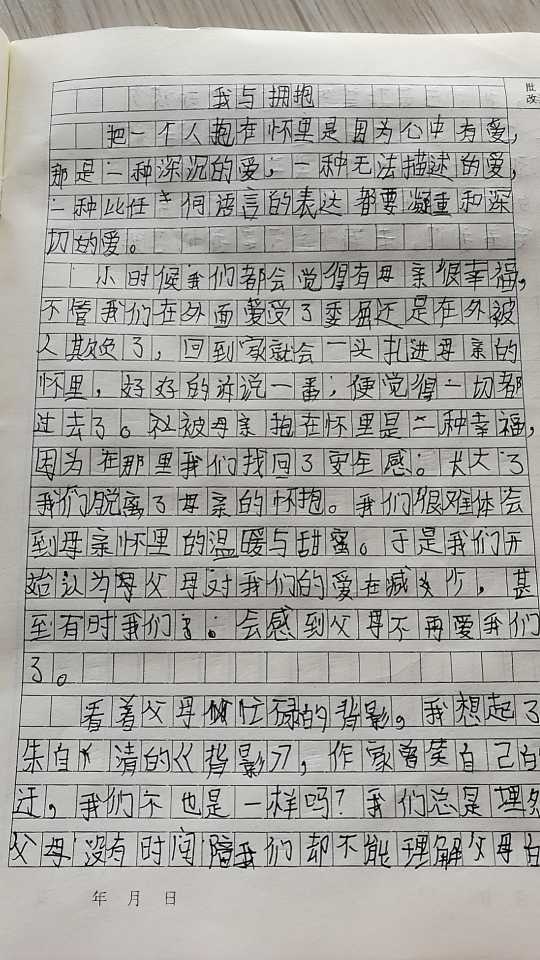 批改
我与拥抱
把一个人抱在怀里是因为心中有爱，
那是一种深沉的爱；一种无法描述的爱，
一种比任何语言的表达都要凝重和深
切的爱。
小时候我们都会觉得有母亲很幸福，
不管我们在外面受了委屈还是在外被
人欺负了，回到家就会一头扎进母亲的
怀里，好好的诉说一番；便觉得一切都
过去了。被母亲抱在怀里是一种幸福，
因为在那里我们找回了安全感。长大了
我们脱离了母亲的怀抱。我们很难体会
到母亲怀里的温暖与甜蜜。于是我们开
始认为父母对我们的爱在减少，甚
至有时我们会感到父母不再爱我们
了。
看着父母忙碌的背影。我想起了
朱自清的《背影》，作家曾笑自己的
迂，我们不也是一样吗？我们总是埋怨
父母没有时间陪我们却不能理解父母的
年 月 日